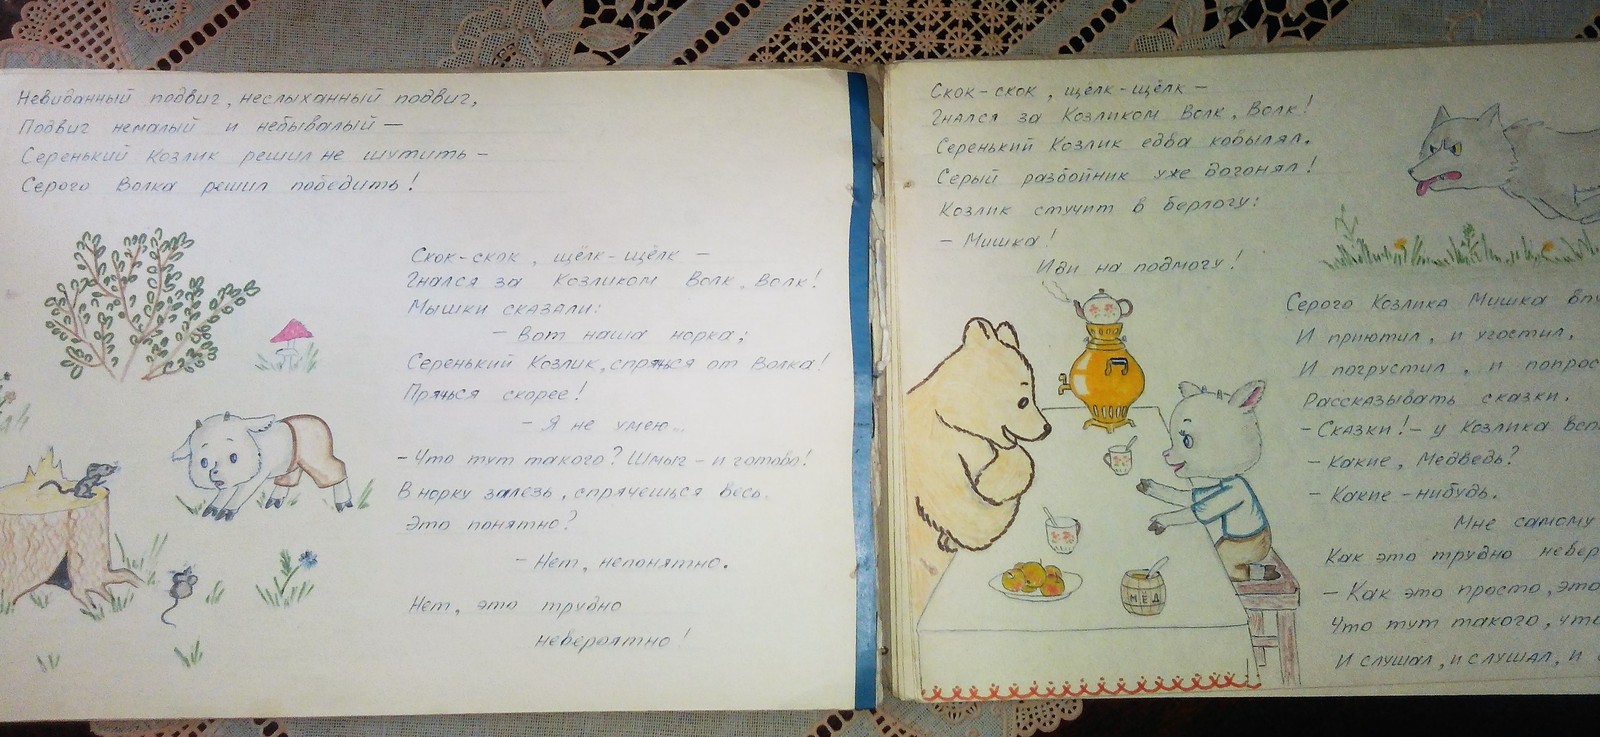 Невиданный подвиг, неслыханный подвиг,
Подвиг немалый и небывалый —
Серенький Козлик решил не шутить —
Серого Волка решил победить!
Скок-скок, щёлк-щёлк —
Гнался за Козликом Волк, Волк!
Мышки сказали:
— Вот наша норка;
Серенький Козлик, спрячься от Волка!
Прячься скорее!
— Я не умею...
— Что тут такого? Шмыг — и готово!
В норку залезь, спрячешься весь.
Это понятно?
— Нет, непонятно.
Нет, это трудно
невероятно!
Скок-скок, щёлк-щёлк —
Гнался за Козликом Волк, Волк!
Серенький Козлик едва ковылял.
Серый разбойник уже догонял!
Козлик стучит в берлогу:
— Мишка!
Иди на подмогу!
Серого Козлика Мишка впу
И приютил, и угостил,
И погрустил, и попрос
Рассказывать сказки.
— Сказки! — у Козлика
— Какие, Медведь?
— Какие-нибудь.
Мне самому
Как это трудно невер
— Как это просто, это
Что тут такого, что
И слушал, и слушал, и
МЁД